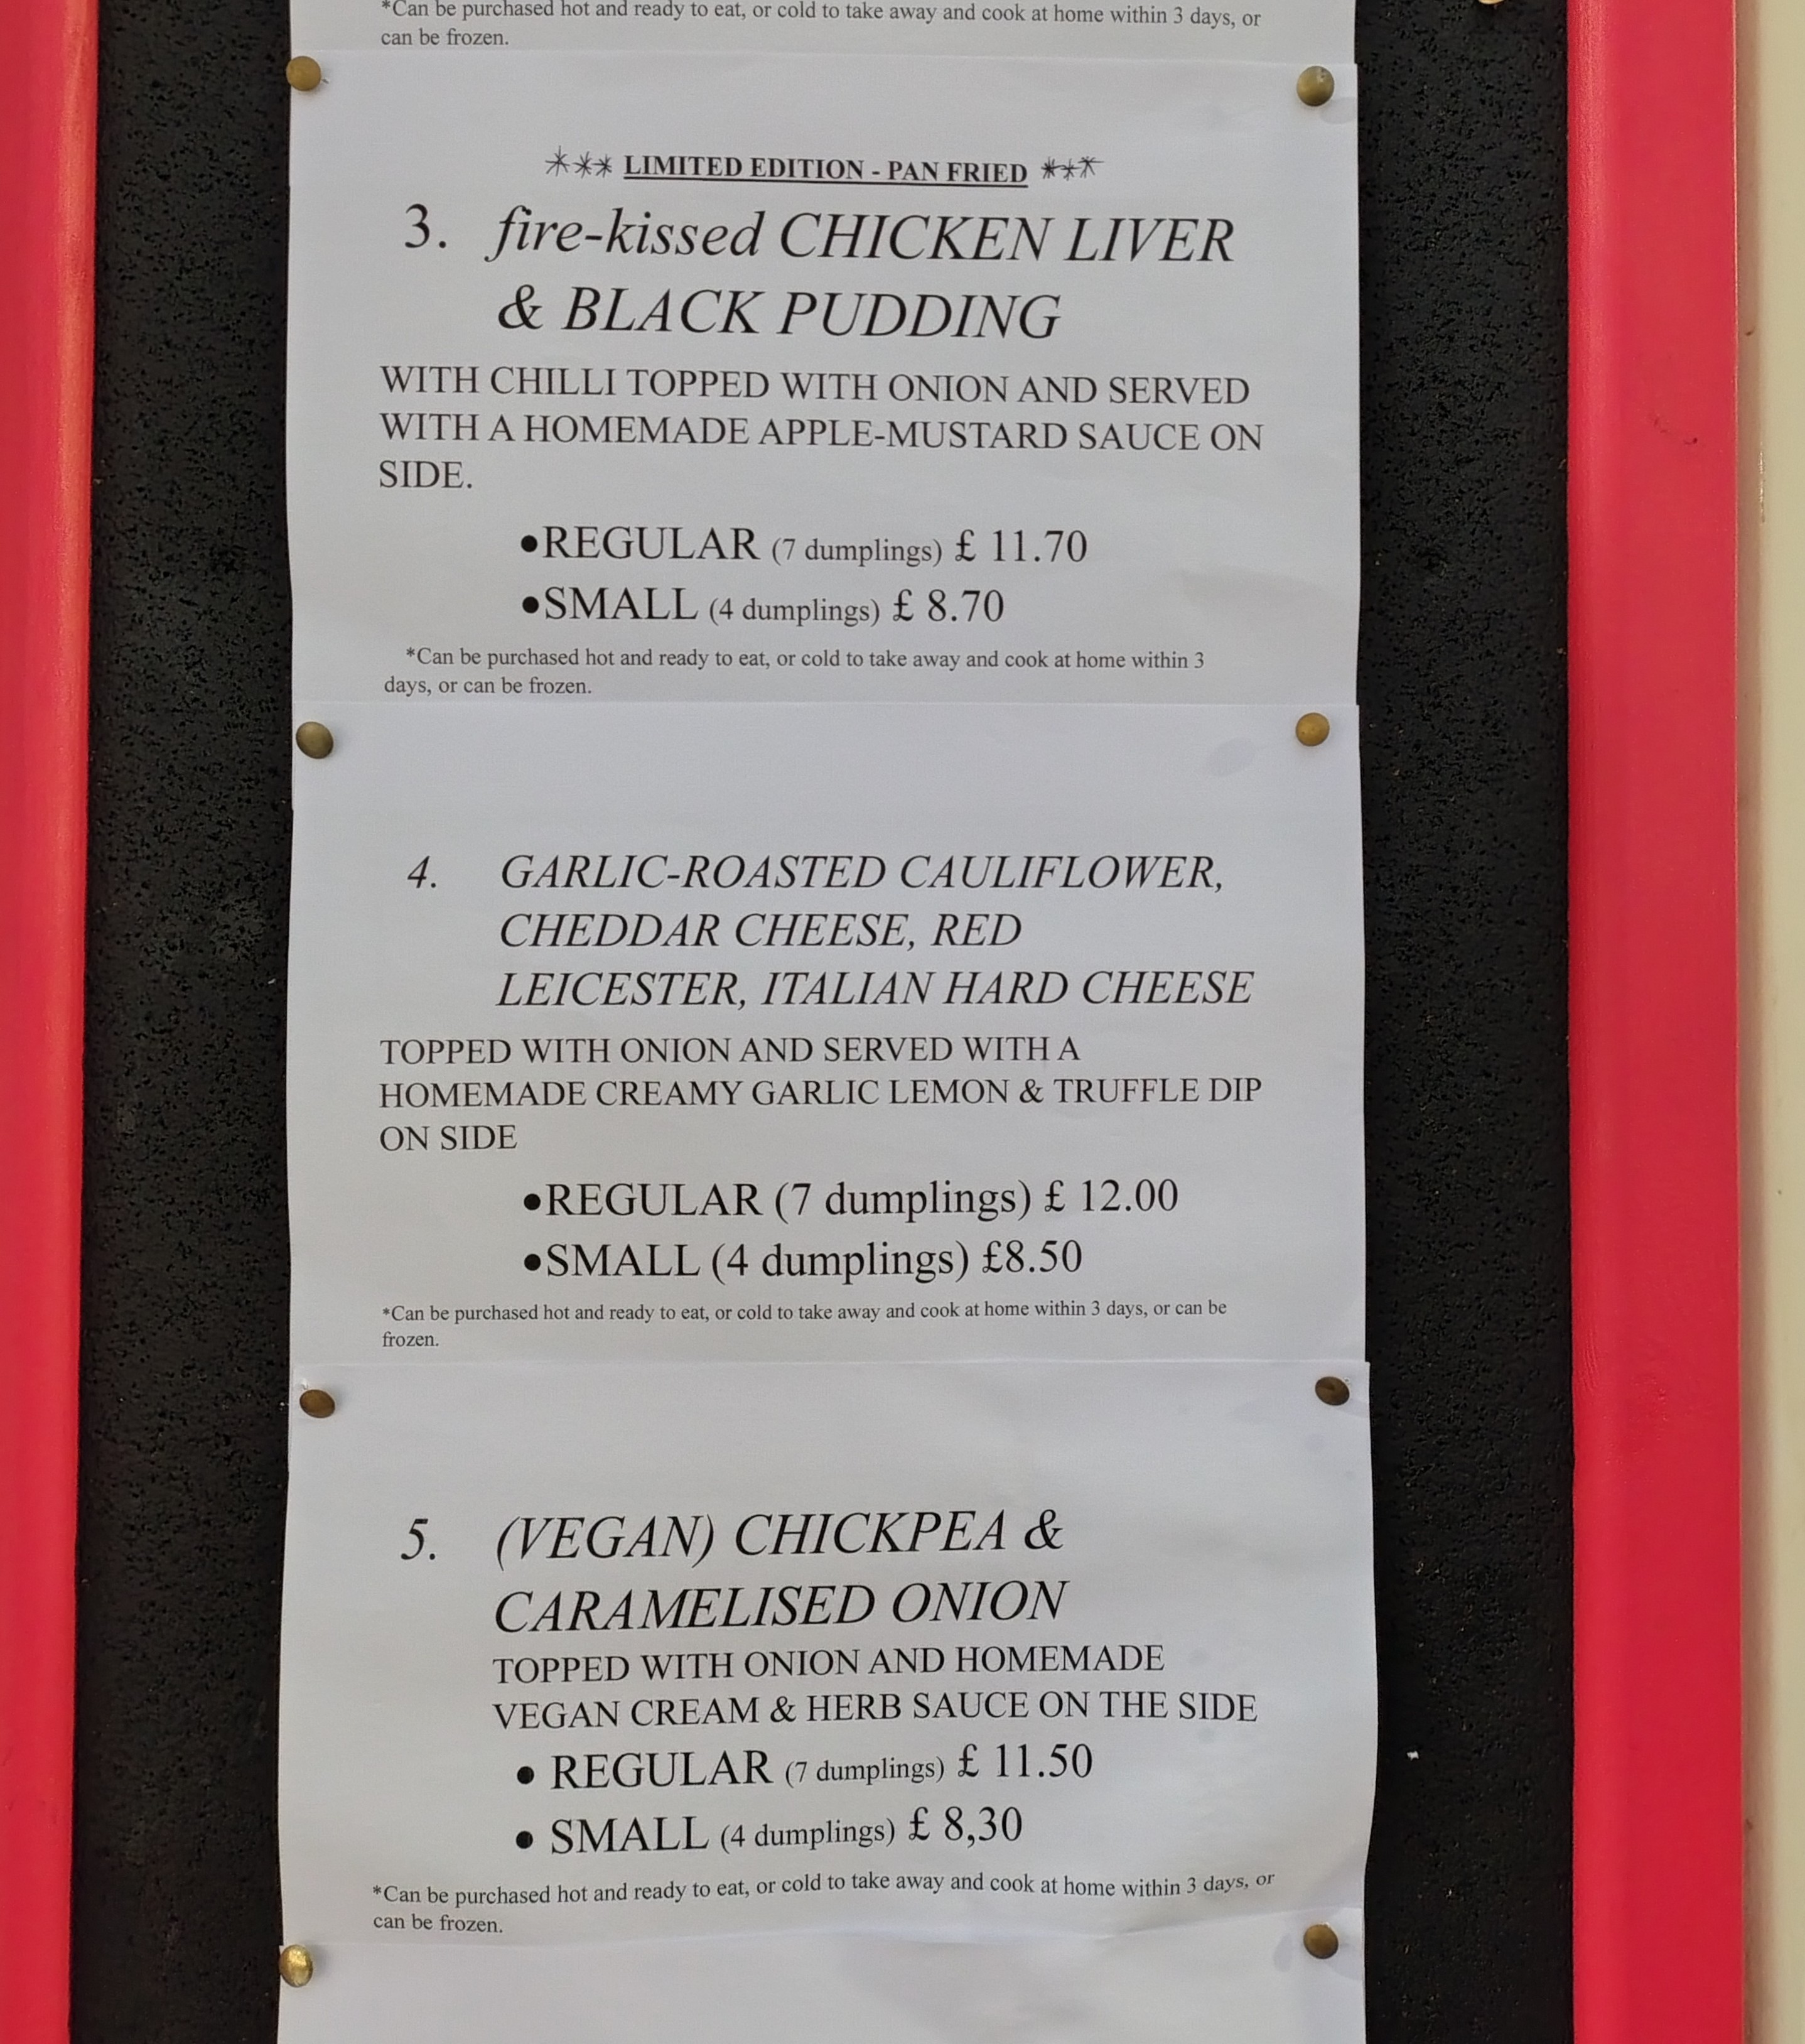 *Can be purchased hot and ready to eat, or cold to take away and cook at home within 3 days, or
can be frozen.
*** LIMITED EDITION - PAN FRIED ***
3. fire-kissed CHICKEN LIVER
& BLACK PUDDING
WITH CHILLI TOPPED WITH ONION AND SERVED
WITH A HOMEMADE APPLE-MUSTARD SAUCE ON
SIDE.
•REGULAR (7 dumplings) £ 11.70
•SMALL (4 dumplings) £ 8.70
*Can be purchased hot and ready to eat, or cold to take away and cook at home within 3
days, or can be frozen.
4. GARLIC-ROASTED CAULIFLOWER,
CHEDDAR CHEESE, RED
LEICESTER, ITALIAN HARD CHEESE
TOPPED WITH ONION AND SERVED WITH A
HOMEMADE CREAMY GARLIC LEMON & TRUFFLE DIP
ON SIDE
•REGULAR (7 dumplings) £ 12.00
•SMALL (4 dumplings) £8.50
*Can be purchased hot and ready to eat, or cold to take away and cook at home within 3 days, or can be
frozen.
5. (VEGAN) CHICKPEA &
CARAMELISED ONION
TOPPED WITH ONION AND HOMEMADE
VEGAN CREAM & HERB SAUCE ON THE SIDE
• REGULAR (7 dumplings) £ 11.50
• SMALL (4 dumplings) £ 8,30
*Can be purchased hot and ready to eat, or cold to take away and cook at home within 3 days, or
can be frozen.